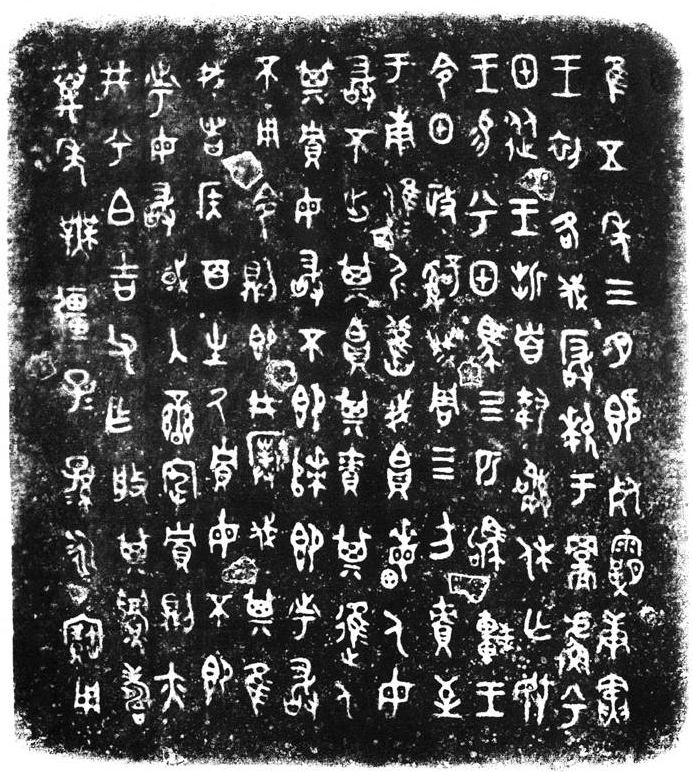 隹五年三月既死霸庚寅
王初各伐玁狁于𩫨䖒兮
甲從王折首執訊休亡敃
王易兮甲馬四匹駒車王
令甲政𤔲成周四方責至
于南淮尸淮尸舊我𢂷畮人毋
敢不出其𢂷其責其進人
其貯毋敢不即次即市敢
不用令則即井撲伐其隹
我者侯百生厥貯毋不即
市毋敢或入蠻宄貯則亦
井兮白吉父乍般其眉壽
萬年無疆子子孫孫永寶用